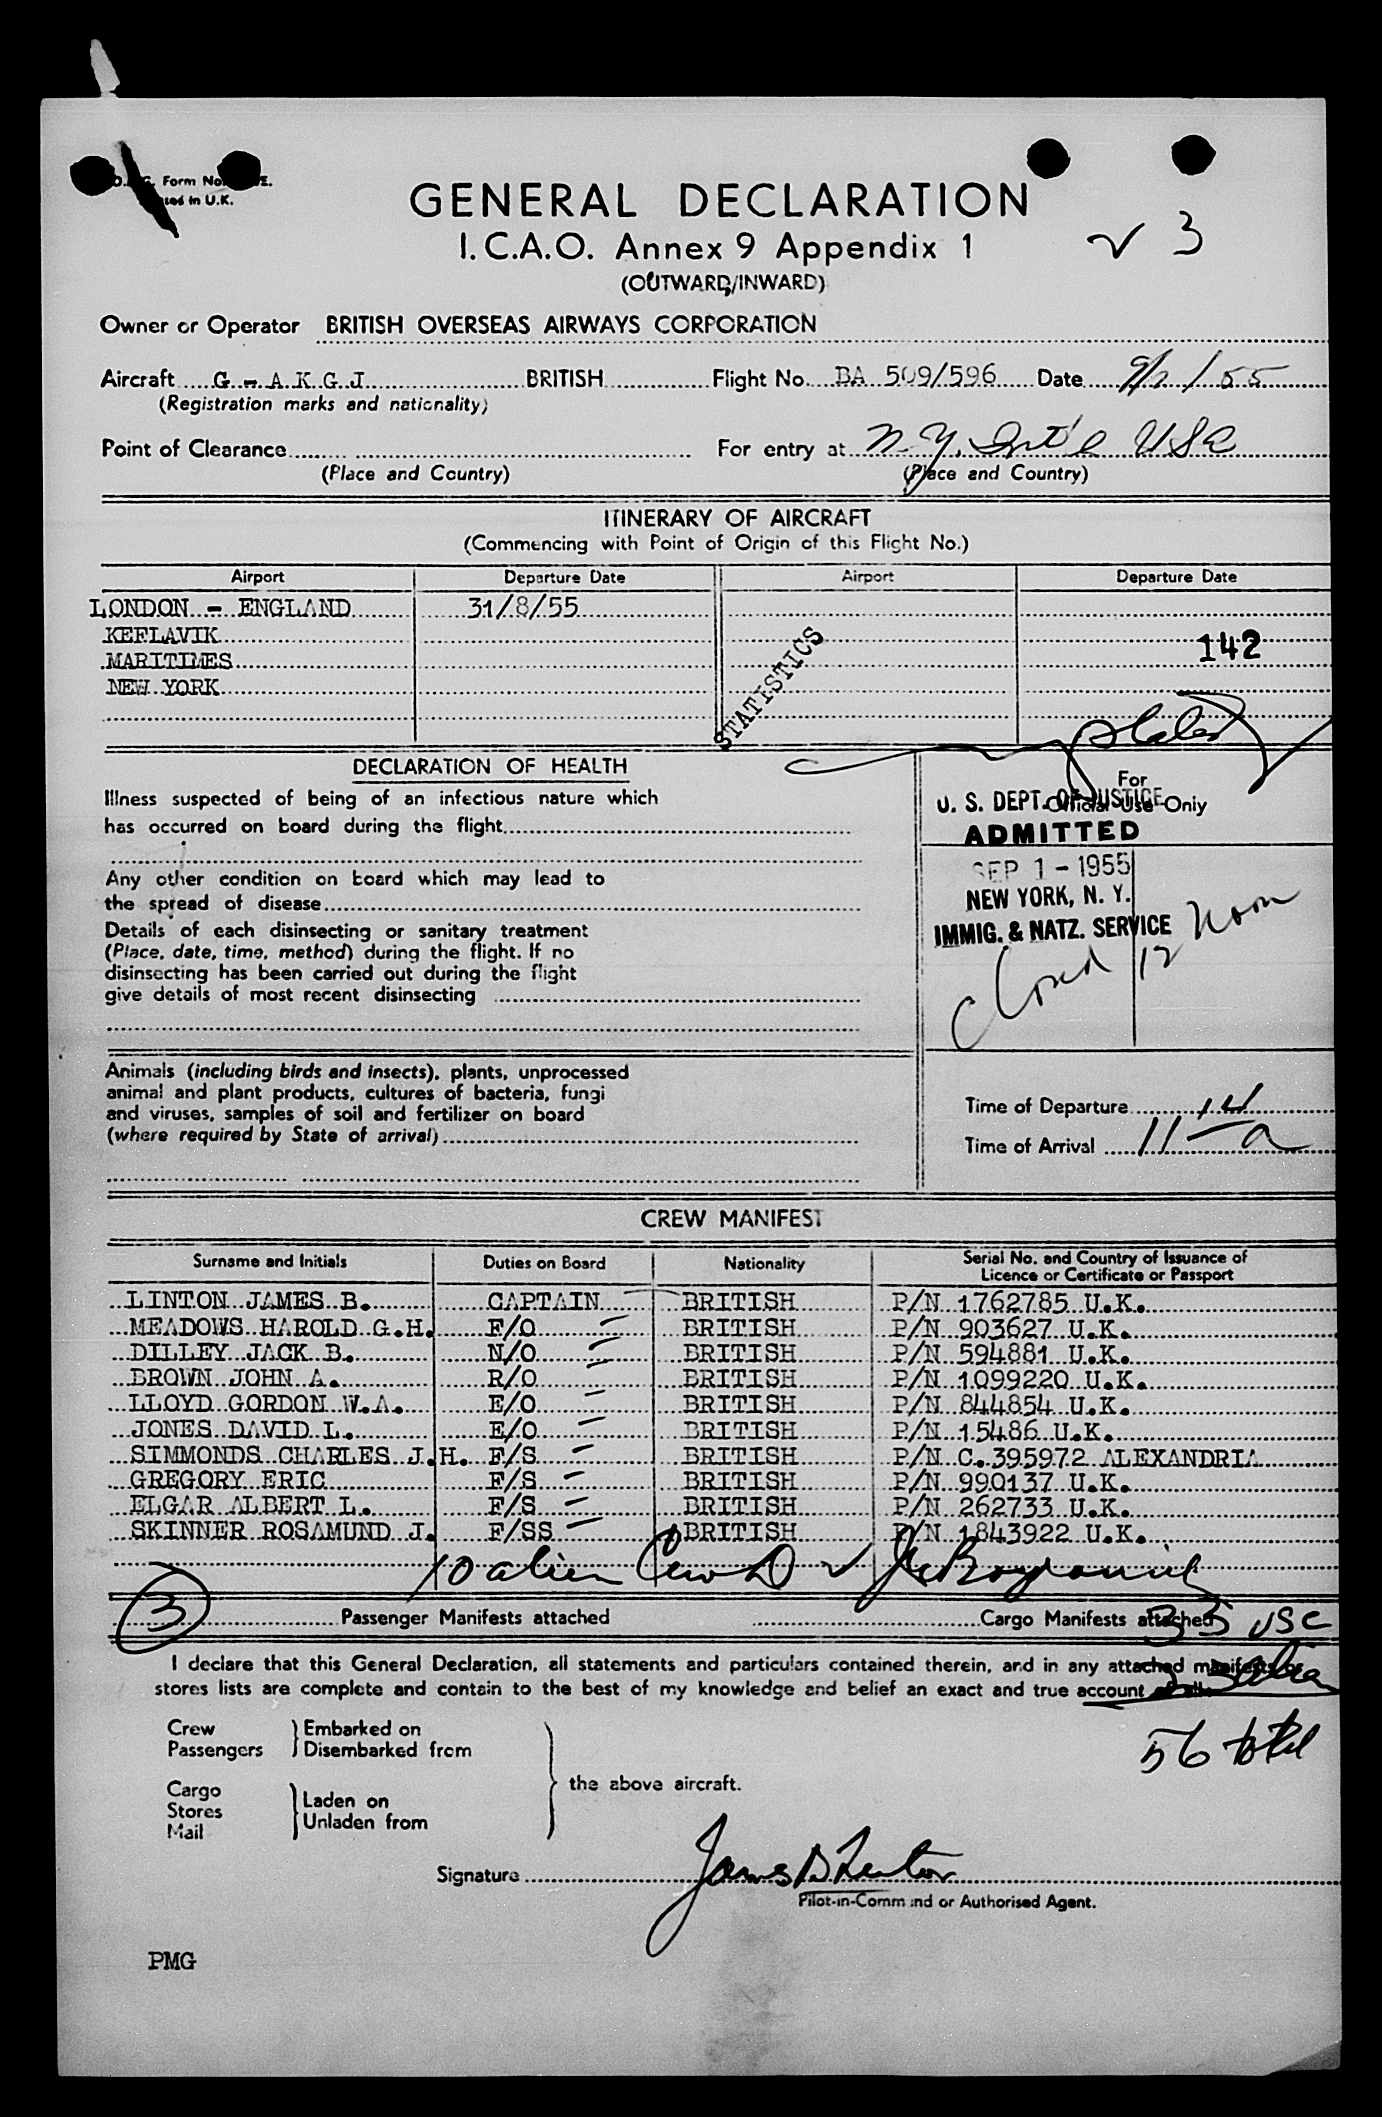 Form No.
in U.K.
GENERAL DECLARATION
I.C.A.O. Annex 9 Appendix 1
✓ 3
(OUTWARD/INWARD)
Owner or Operator BRITISH OVERSEAS AIRWAYS CORPORATION
Aircraft G - A K G J BRITISH Flight No. BA 509/596 Date 9/1/55
(Registration marks and nationality)
Point of Clearance For entry at N.Y. Int'l USA
(Place and Country) (Place and Country)
ITINERARY OF AIRCRAFT
(Commencing with Point of Origin of this Flight No.)
Airport Departure Date Airport Departure Date
LONDON - ENGLAND 31/8/55
KEFLAVIK
MARITIMES
NEW YORK
STATISTICS
142
DECLARATION OF HEALTH
Illness suspected of being of an infectious nature which
has occurred on board during the flight
Any other condition on board which may lead to
the spread of disease
Details of each disinsecting or sanitary treatment
(Place, date, time, method) during the flight. If no
disinsecting has been carried out during the flight
give details of most recent disinsecting
For
Official Use Only
U. S. DEPT. OF JUSTICE
ADMITTED
SEP 1 - 1955
NEW YORK, N. Y.
IMMIG. & NATZ. SERVICE
12 Noon
Animals (including birds and insects), plants, unprocessed
animal and plant products, cultures of bacteria, fungi
and viruses, samples of soil and fertilizer on board
(where required by State of arrival)
Time of Departure
Time of Arrival 11 14 a
CREW MANIFEST
Surname and Initials Duties on Board Nationality Serial No. and Country of Issuance of
Licence or Certificate or Passport
LINTON JAMES B. CAPTAIN BRITISH P/N 1762785 U.K.
MEADOWS HAROLD G.H. F/O BRITISH P/N 903627 U.K.
DILLEY JACK B. N/O BRITISH P/N 594881 U.K.
BROWN JOHN A. R/O BRITISH P/N 1099220 U.K.
LLOYD GORDON W.A. E/O BRITISH P/N 844854 U.K.
JONES DAVID L. E/O BRITISH P/N 15486 U.K.
SIMMONDS CHARLES J.H. F/S BRITISH P/N C.395972 ALEXANDRIA
GREGORY ERIC F/S BRITISH P/N 990137 U.K.
ELGAR ALBERT L. F/S BRITISH P/N 262733 U.K.
SKINNER ROSAMUND J. F/SS BRITISH P/N 1843922 U.K.
10 alien Crew
3 Passenger Manifests attached Cargo Manifests attached
35 USC
I declare that this General Declaration, all statements and particulars contained therein, and in any attached manifests or
stores lists are complete and contain to the best of my knowledge and belief an exact and true account of all:
56 total
Crew Embarked on
Passengers Disembarked from
the above aircraft.
Cargo
Stores
Mail
Laden on
Unladen from
Signature James B Linton
Pilot-in-Command or Authorised Agent.
PMG